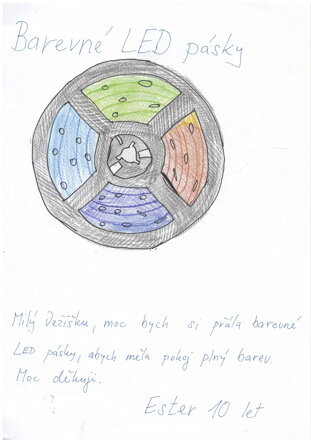 Barevné LED pásky
Milý Ježíšku, moc bych si přála barevné
LED pásky, abych měla pokoj plný barev.
Moc děkuji.
Ester 10 let